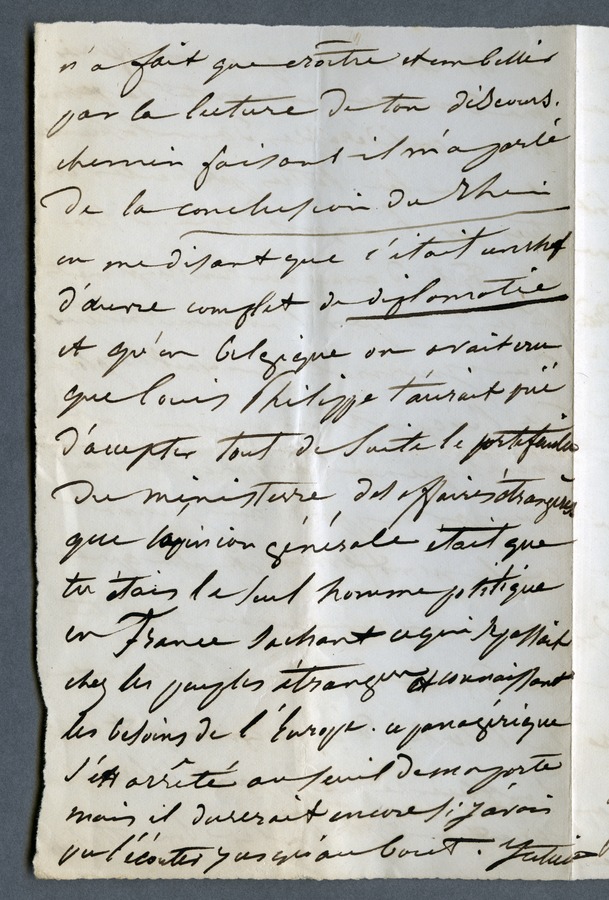 n'a fait que croître et embellir
par la lecture de ton discours.
chemin faisant il m'a parlé
de la conclusion du Rhin
en me disant que c'était un chef
d'œuvre complet de diplomatie
et qu'en Belgique on avait cru
que Louis Philippe t'aurait prié
d'accepter tout de suite le portefeuille
du ministerre des affaires étrangères
que l'opinion générale était que
tu étais le seul homme politique
en France sachant ce qui se passait
chez les peuples étrangers et connaissant
les besoins de l'Europe. ce panégirique
s'est arrêté au seuil de ma porte
mais il durerait encore si j'avais
pu l'écouter jusqu'au bout.